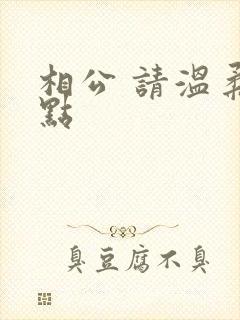 相公 請溫柔
點
臭豆腐不臭